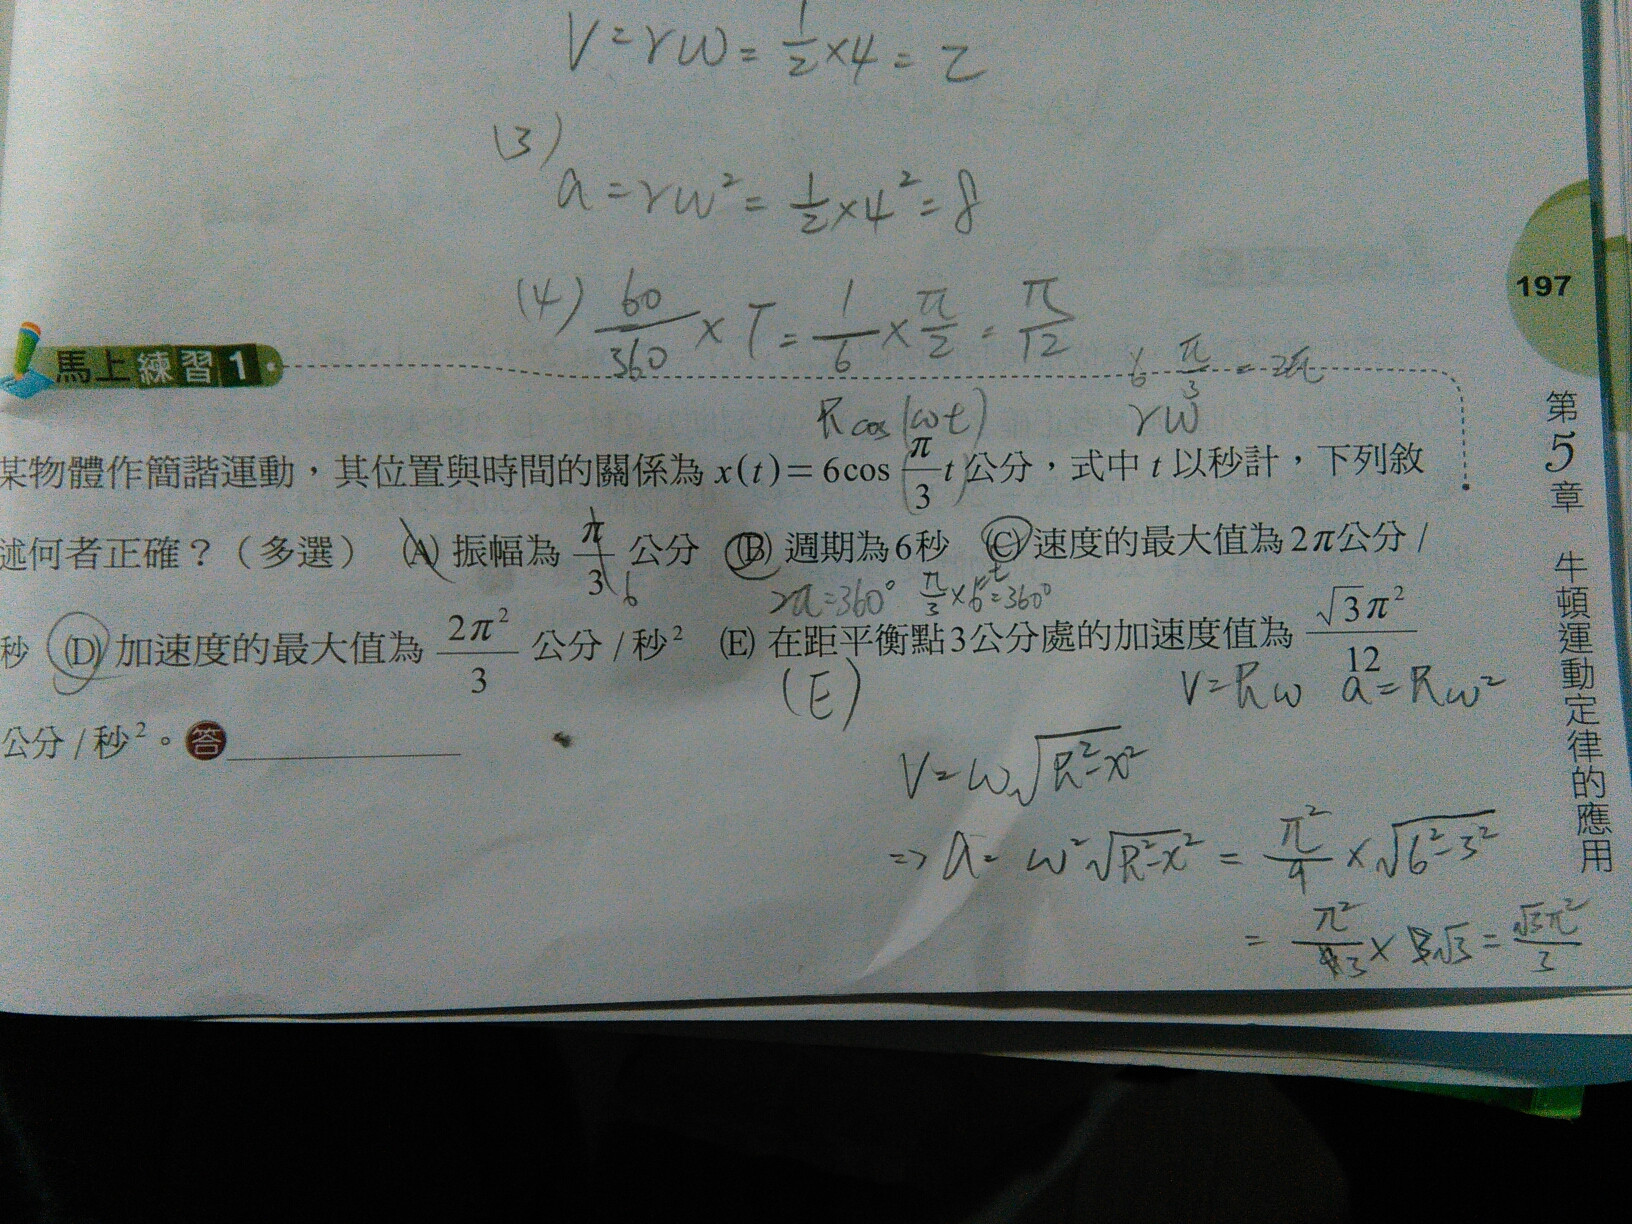 V=rω=1/2×4=2
(3)
a=rω²=1/2×4²=8
(4) 60/360×T=1/6×π/2=π/12
197
馬上練習1
6 π/3 =2π
R cos(ωt) rω
某物體作簡諧運動，其位置與時間的關係為 x(t)=6cos(π/3 t)公分，式中 t 以秒計，下列敘
述何者正確？（多選） (A) 振幅為 π/3 公分 (B) 週期為6秒 (C) 速度的最大值為2π公分/
6 2π=360° π/3×6=360°
t
秒 (D) 加速度的最大值為 2π²/3 公分/秒² (E) 在距平衡點3公分處的加速度值為 √3π²/12
公分/秒²。答
(E) V=Rω a=Rω²
V=ω√R²-x²
=> a= ω²√R²-x² = π²/9 ×√6²-3²
= π²/3 × √3 = √3π²/3
第5章 牛頓運動定律的應用